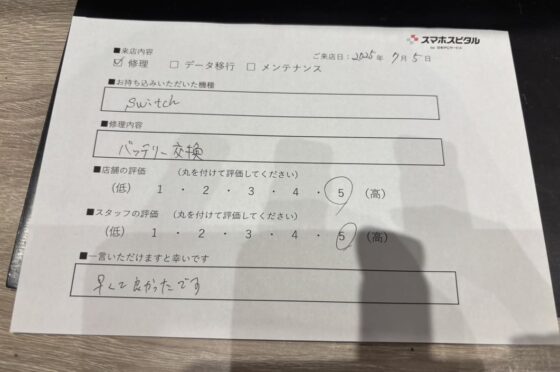 スマホスピタル
■来店内容
ご来店日：2025年 7月 5日
☑ 修理 □ データ移行 □ メンテナンス
■お持ち込みいただいた機種
switch
■修理内容
バッテリー交換
■店舗の評価 （丸を付けて評価してください）
（低） 1 ・ 2 ・ 3 ・ 4 ・ 5 （高）
■スタッフの評価 （丸を付けて評価してください）
（低） 1 ・ 2 ・ 3 ・ 4 ・ 5 （高）
■一言いただけますと幸いです
早くて良かったです